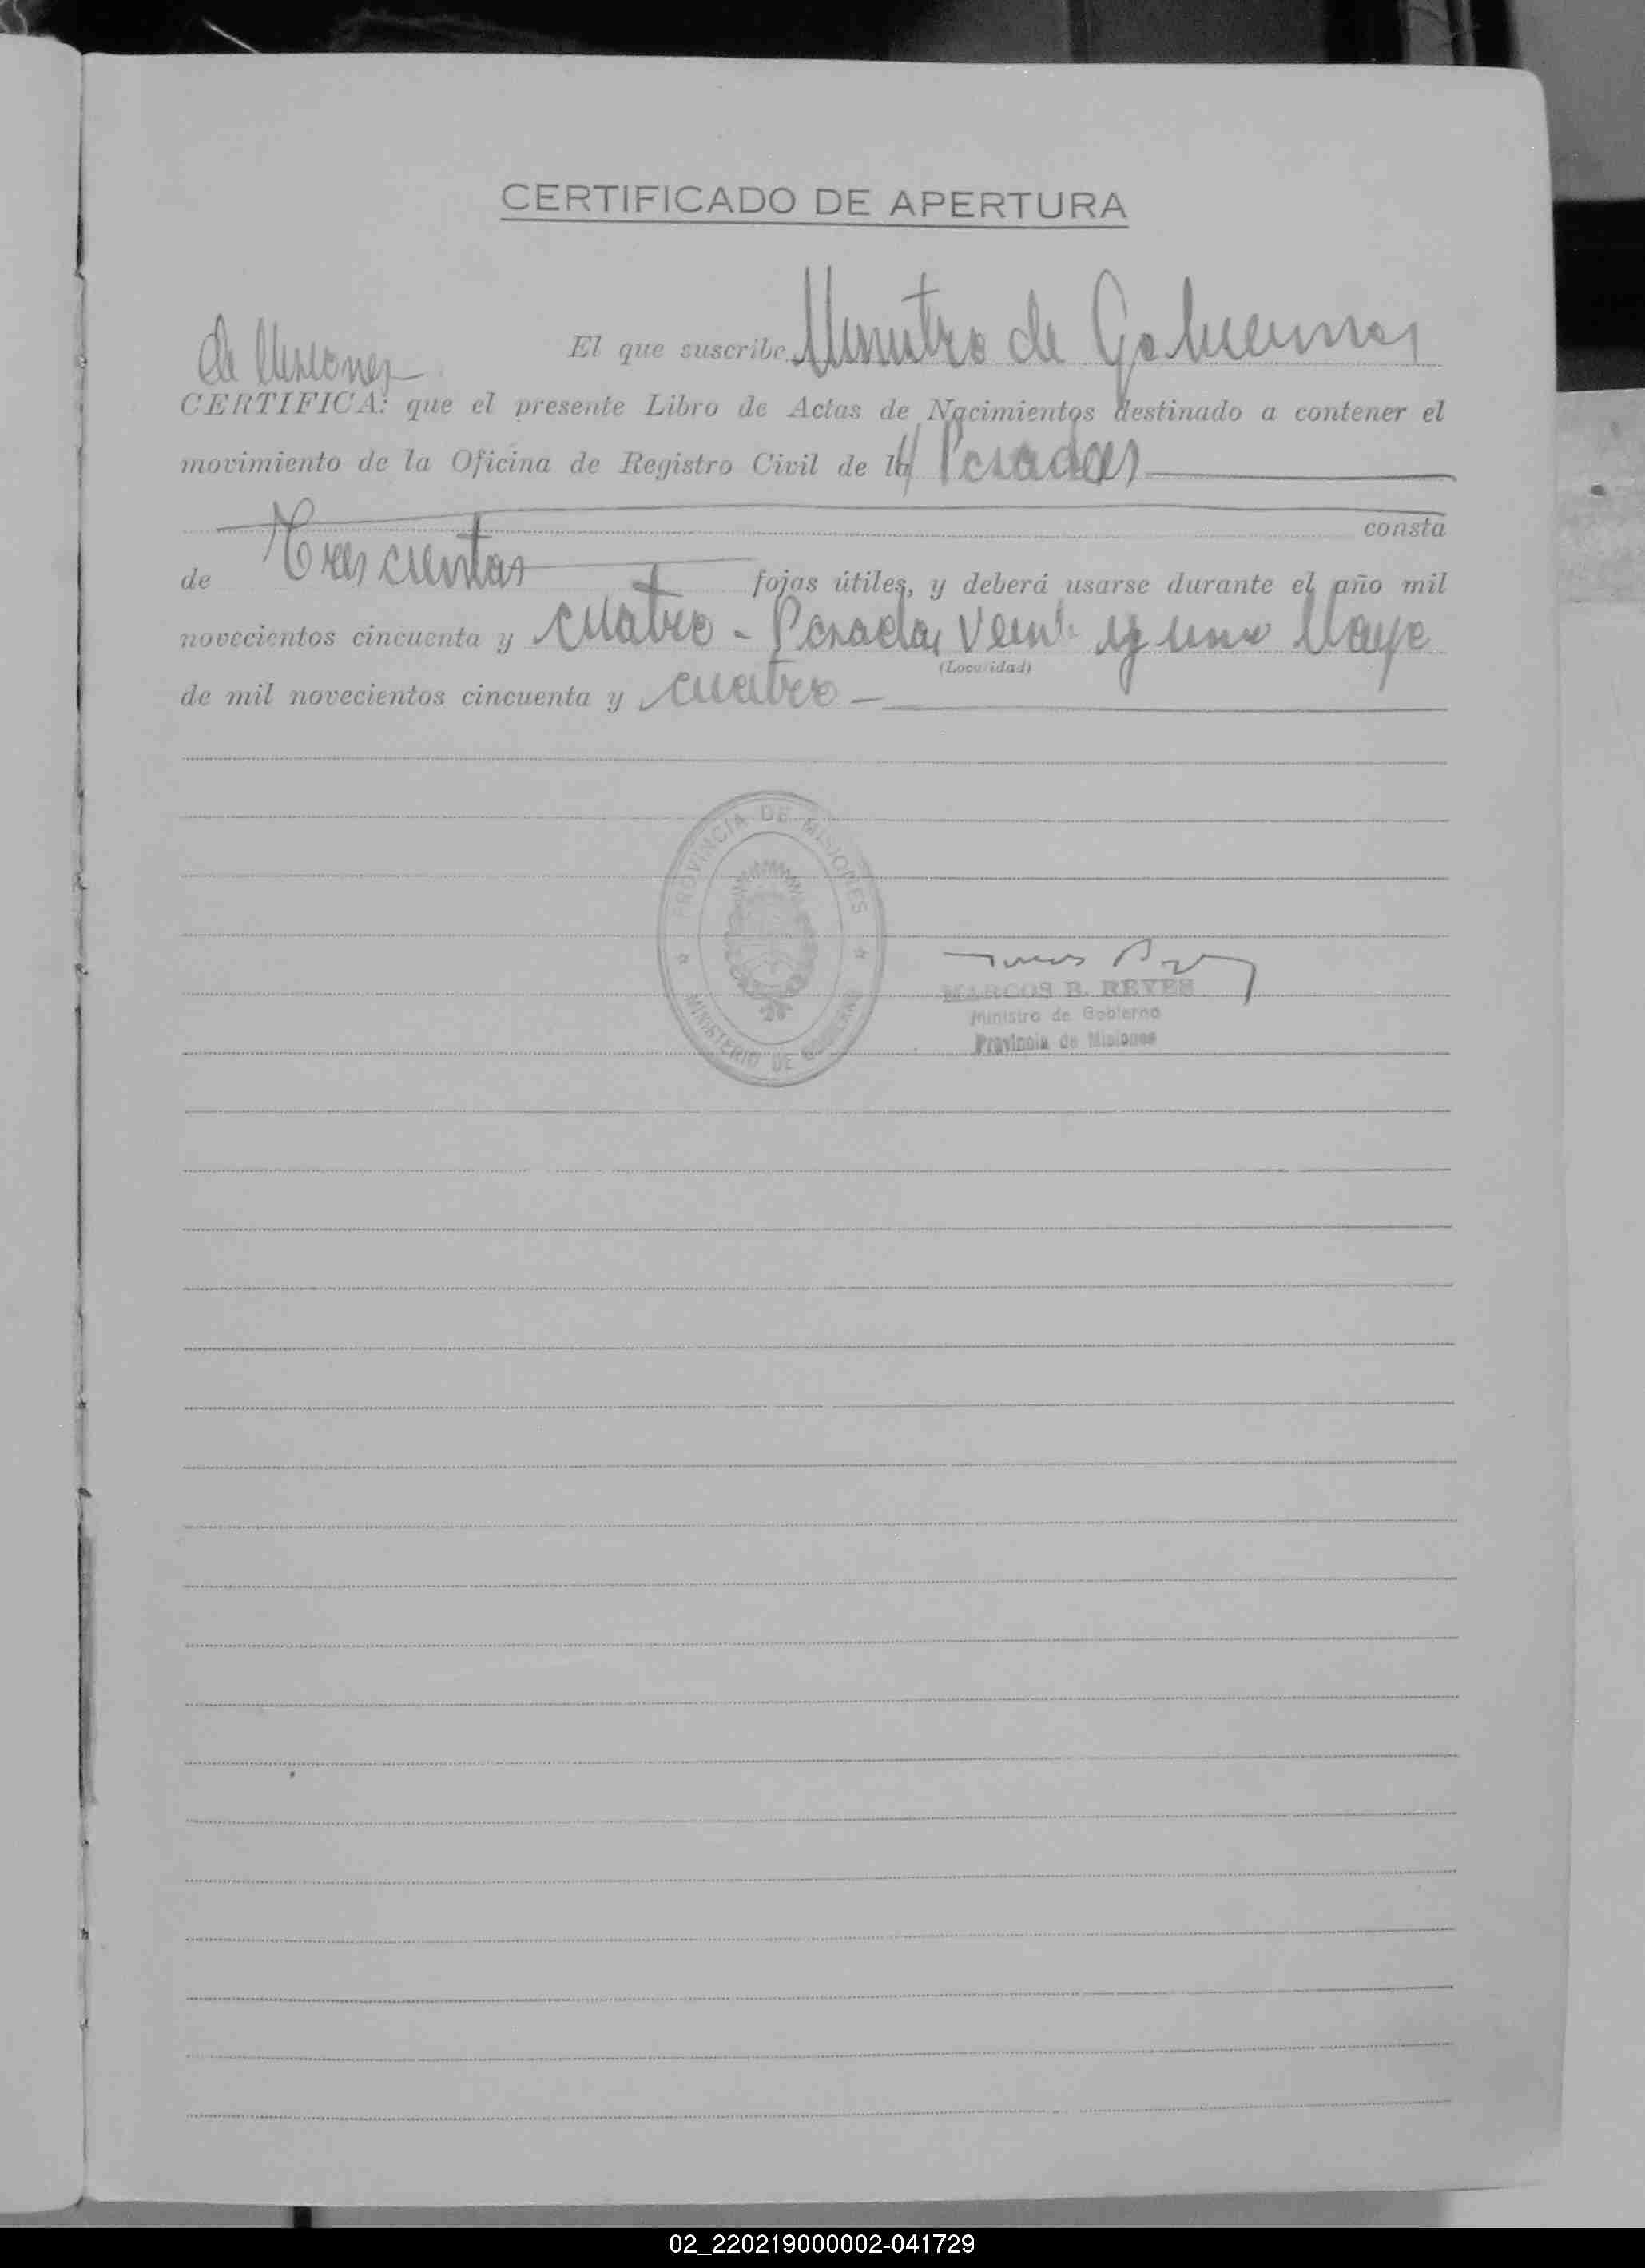 CERTIFICADO DE APERTURA
El que suscribe Ministro de Gobierno
de Misiones
CERTIFICA: que el presente Libro de Actas de Nacimientos destinado a contener el
movimiento de la Oficina de Registro Civil de la Posadas
consta
de Trescientas fojas útiles, y deberá usarse durante el año mil
novecientos cincuenta y cuatro - Posadas, Veinti y uno Mayo
(Localidad)
de mil novecientos cincuenta y cuatro -
PROVINCIA DE MISIONES
MINISTERIO DE GOBIERNO
MARCOS B. REYES
Ministro de Gobierno
Provincia de Misiones
02_220219000002-041729